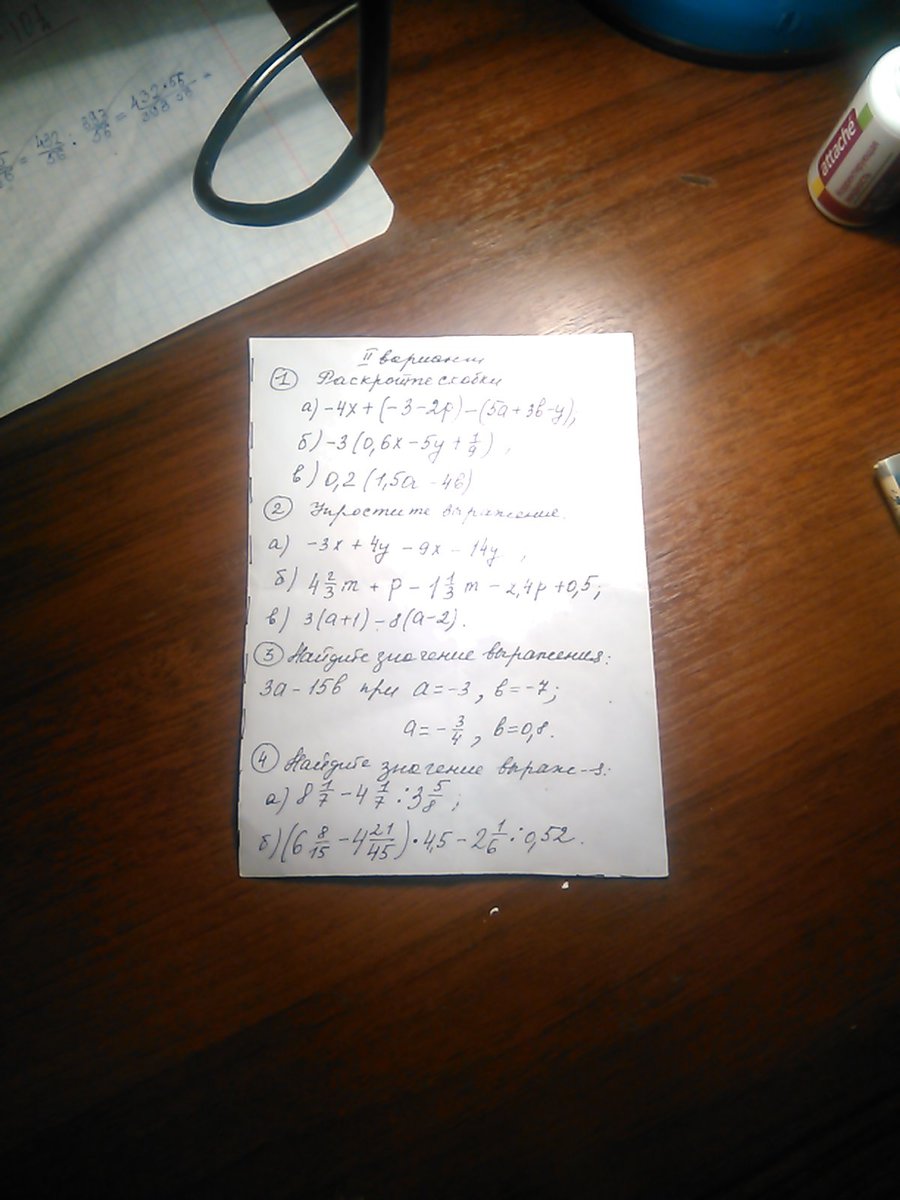 = 432/56 : 232/56 =
attaché
II вариант
① Раскройте скобки
а) -4x + (-3-2p) - (5a+3b-y);
б) -3(0,6x - 5y + 1/9),
в) 0,2(1,5a - 4b)
② Упростите выражение.
а) -3x + 4y - 9x - 14y,
б) 4 2/3 m + p - 1 1/3 m - 2,4p + 0,5;
в) 3(a+1) - 8(a-2).
③ Найдите значение выражения:
3a - 15b при a = -3, b = -7;
a = - 3/4, b = 0,8.
④ Найдите значение выраж-я:
а) 8 1/7 - 4 1/7 : 3 5/8;
б) (6 8/15 - 4 21/45) · 4,5 - 2 1/6 : 0,52.